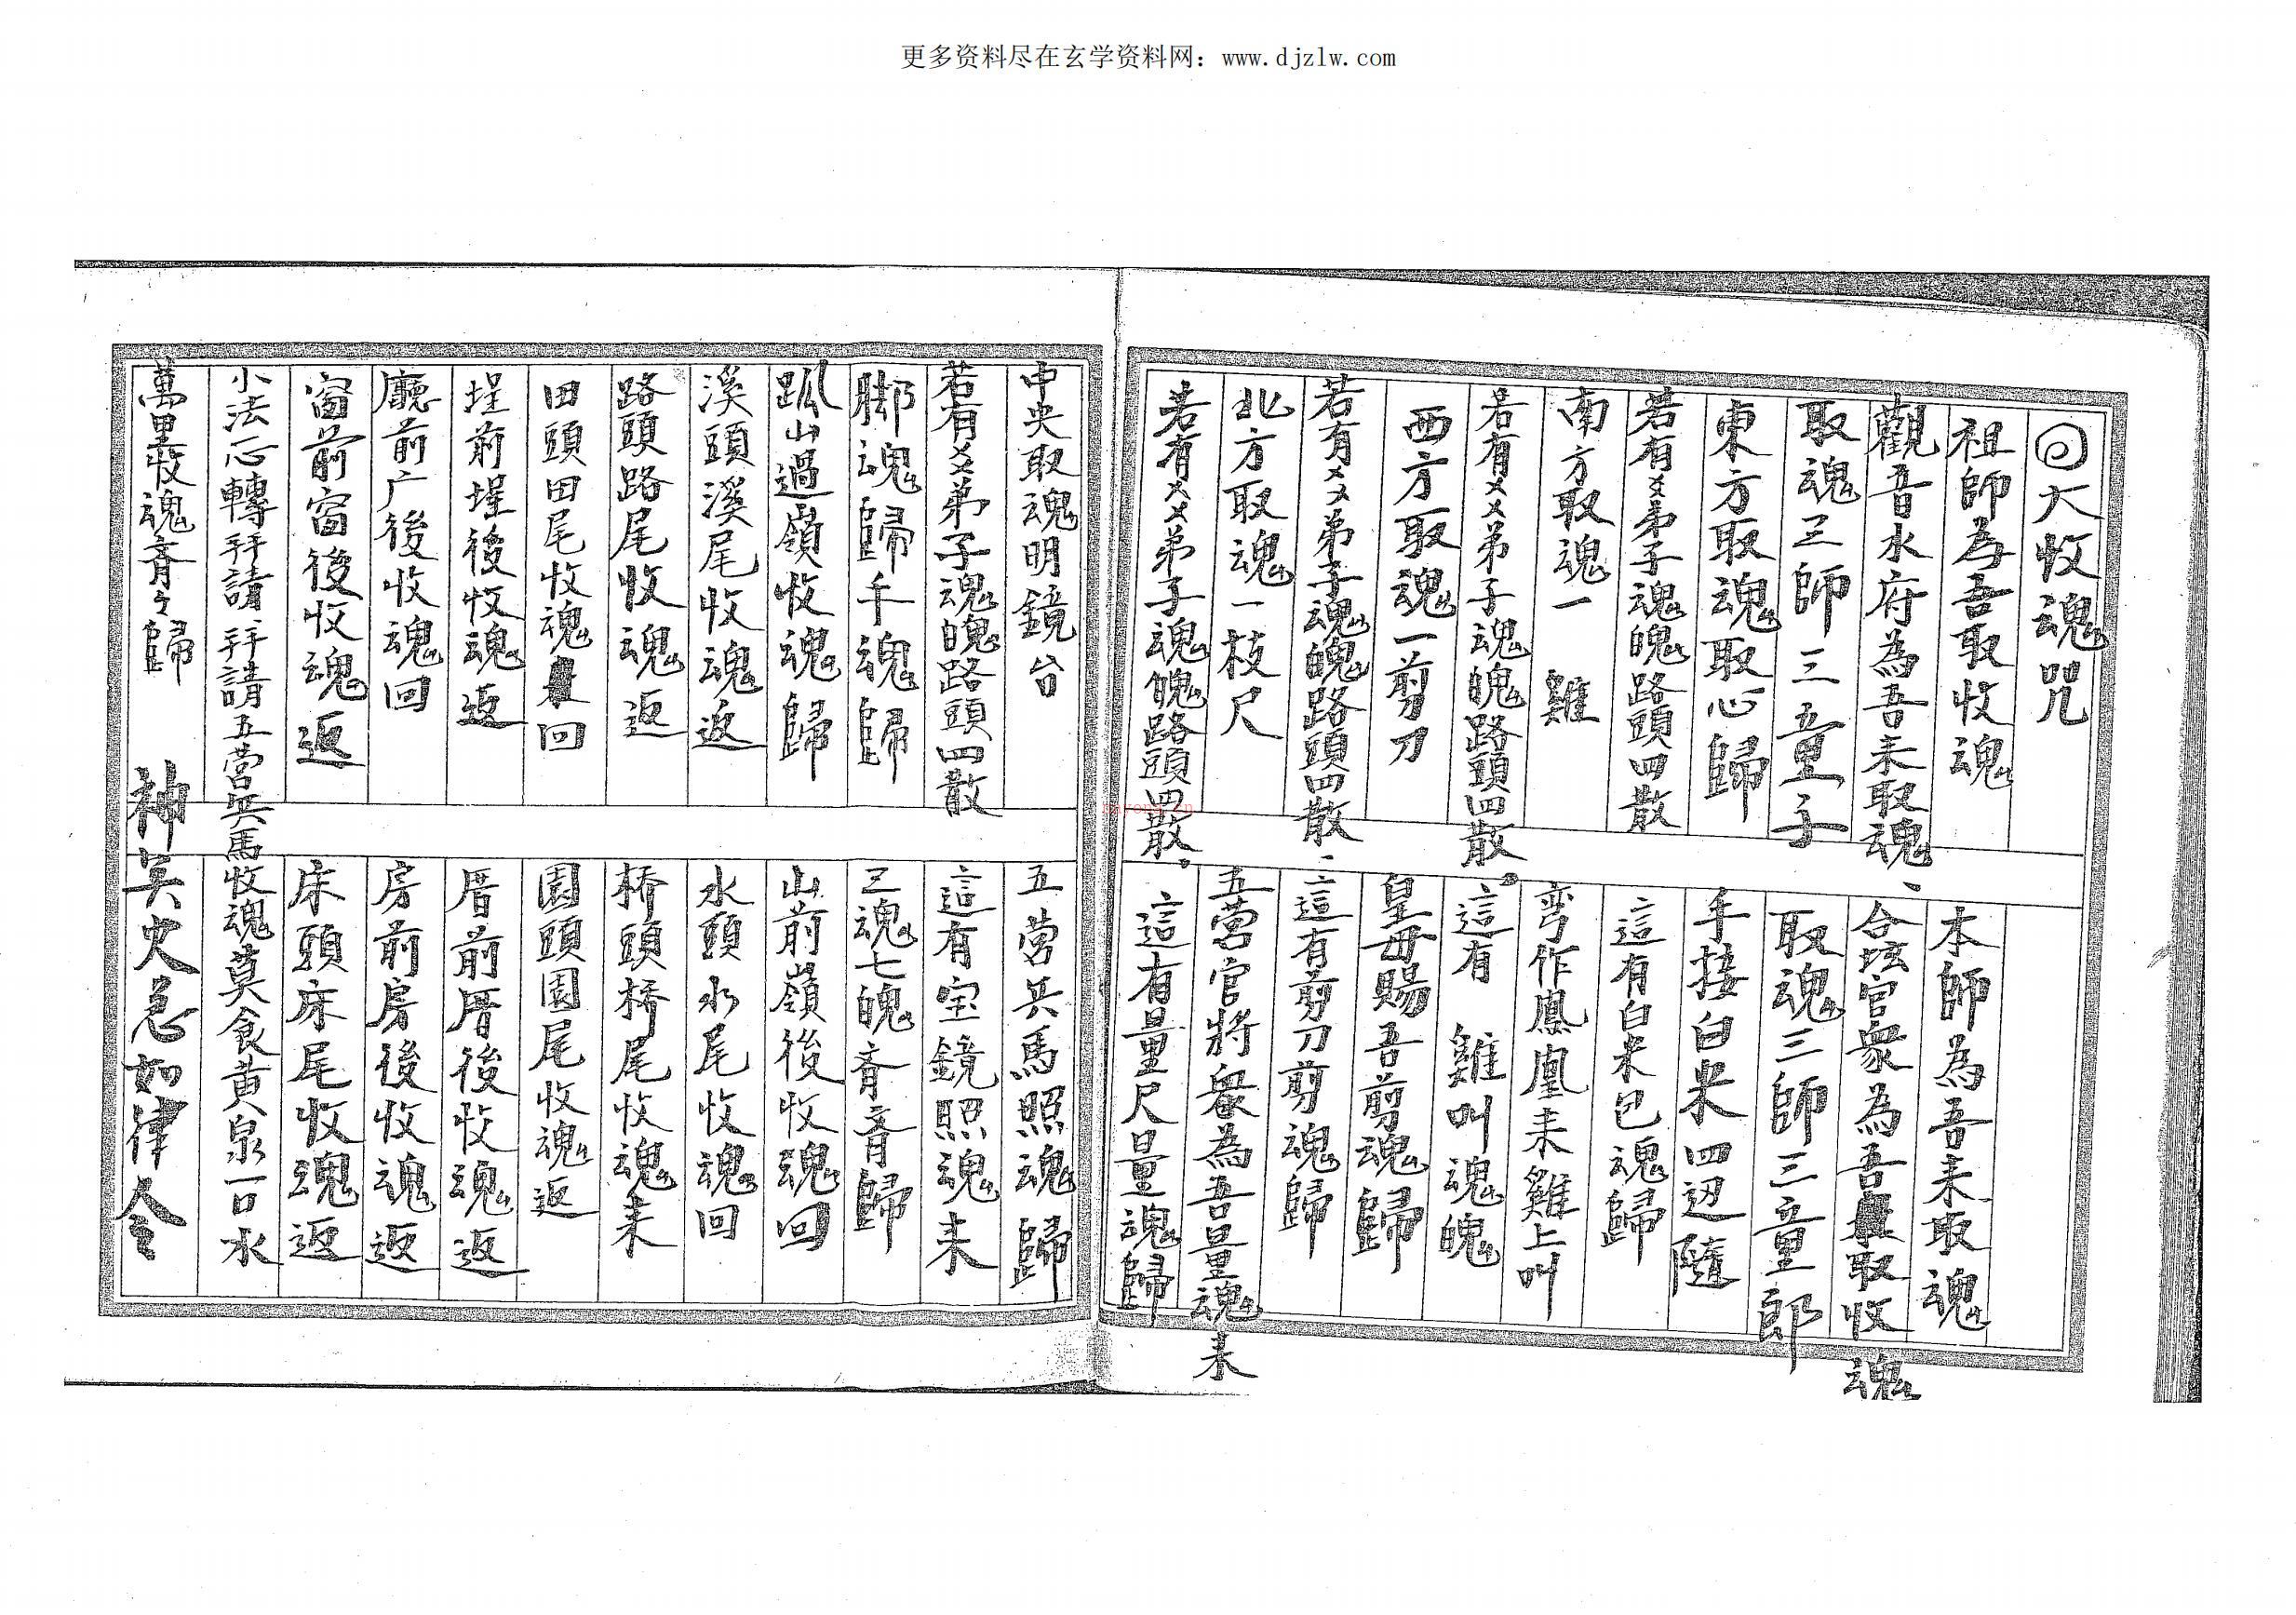 更多资料尽在玄学资料网：www.djzlw.com
大收魂咒
祖師為吾取收魂　本師為吾来取魂
觀音水府為吾来取魂、合坛官衆為吾取收魂
取魂三師三童子　取魂三師三童郎
東方取魂取心歸　手接白米四边隨
若有××弟子魂魄路頭四散　這有白米包魂歸
南方取魂一　雞　弯作鳳凰来雞上叫
若有××弟子魂魄路頭四散。這有　雞叫魂魄
西方取魂一剪刀　皇母賜吾剪魂歸
若有××弟子魂魄路頭四散、這有剪刀剪魂歸
北方取魂一枝尺　五营官將衆為吾量魂来
若有××弟子魂魄路頭四散、這有量尺量魂歸
中央取魂明鏡台　五营兵馬照魂歸
若有××弟子魂魄路頭四散　這有宝鏡照魂来
脚魂歸手魂歸　三魂七魄斉斉歸
山過嶺收魂歸　山前嶺後收魂回
溪頭溪尾收魂返　水頭水尾收魂回
路頭路尾收魂返　桥頭桥尾收魂来
田頭田尾收魂回　園頭園尾收魂返
埕前埕後收魂返　厝前厝後收魂返
廳前广後收魂回　房前房後收魂返
窗前窗後收魂返　床頭床尾收魂返
小法心轉拜請、拜請五营兵馬收魂莫食黄泉一口水
萬里收魂斉々歸　神兵火急如律令